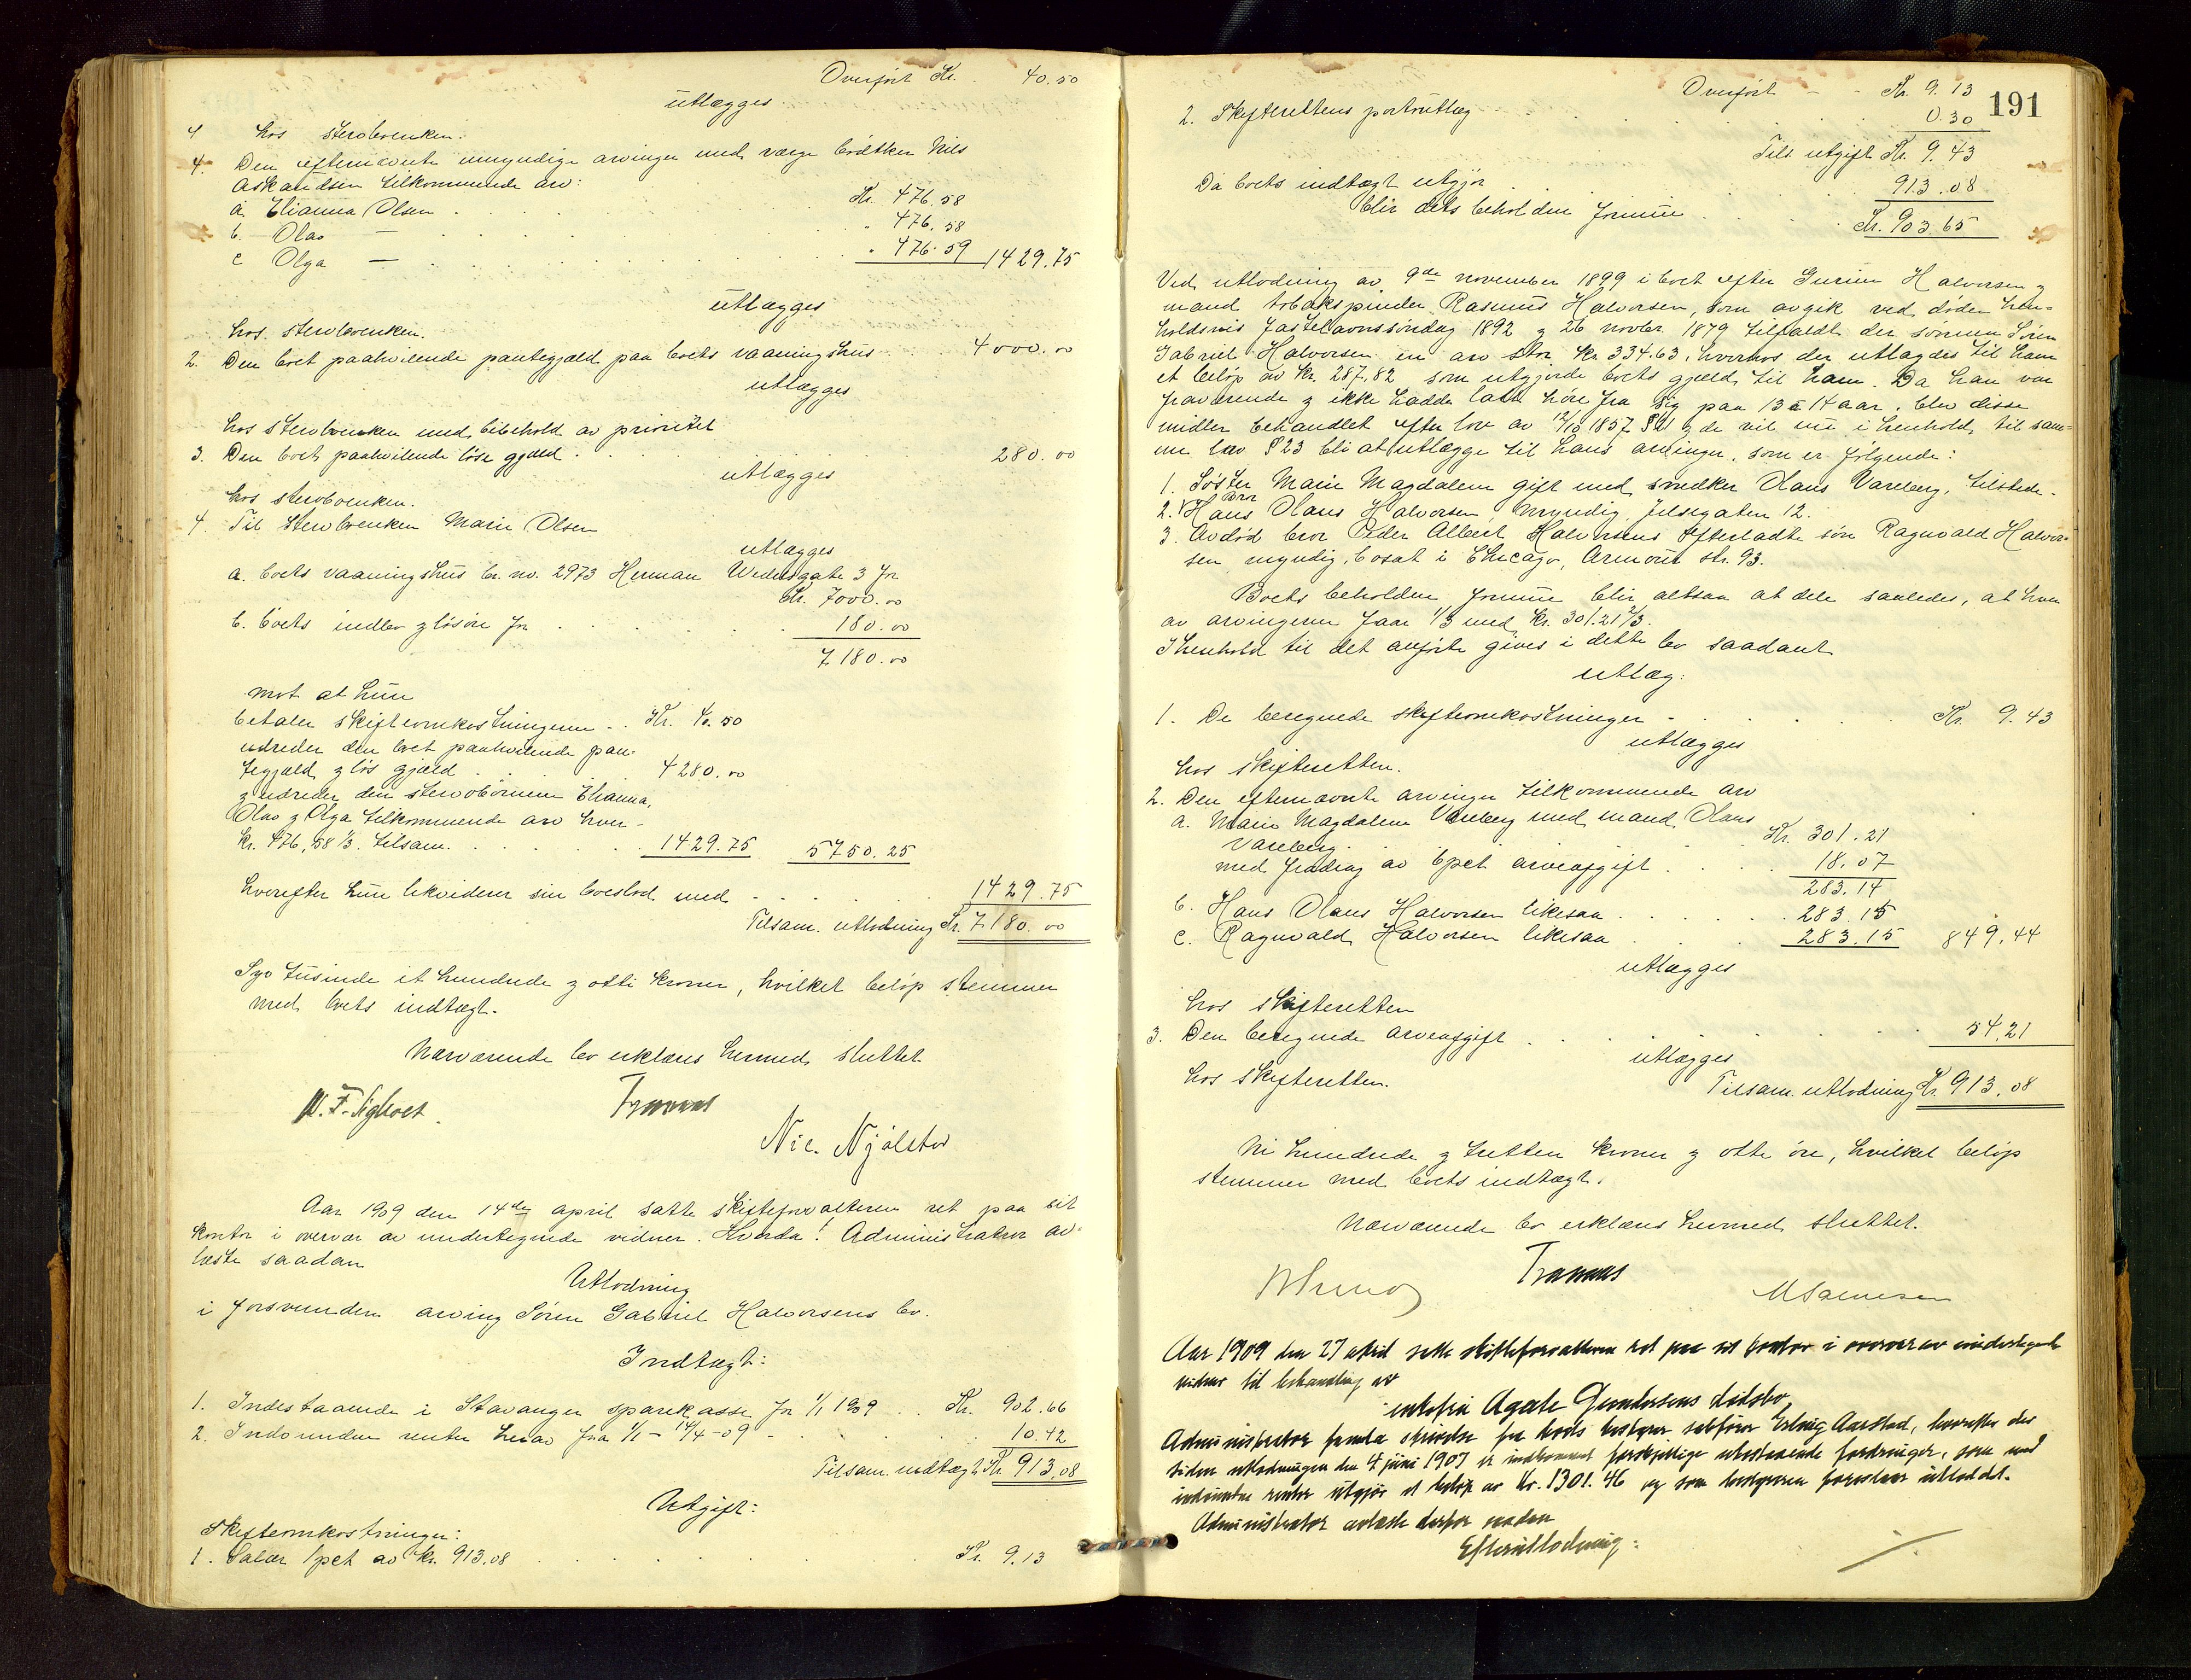 Overført Kr. 40.50
utlægges
4 hos sterobovenken.
4. Den efternævnte umyndige arvinger med værge bødtker Nils
Askandsen tilkommende arv:
a. Elianna Olsen . . . Kr. 476.58
b. Olav — . . . " 476.58
c Olga — . . . " 476.59 1429.75
utlægges
hos sterobvenken.
2. Den boet paahvilende pantegjæld paa boets vaaningshus 4000.00
utlægges
hos sterobvenken med bibehold av prioritet
3. Den boet paahvilende løse gjæld . . . 280.00
utlægges
hos sterobvenken.
4. Til sterobvenken Marie Olsen
utlægges
a. boets vaaningshus br. no. 2973 Herman Wedelsgate 3 for
Kr. 7000.00
b. boets indbo z løsøre for . . . 180.00
7180.00
mot at hun
betaler skifteomkostningerne .. Kr. 40.50
udreder den boet paahvilende pan-
tegjæld z løs gjæld . . . 4280.00
z udreder den sterobørnene Elianna,
Olav z Olga tilkommende arv hver
kr. 476,58 1/3. tilsam. . . . 1429.75 5750.25
hvorefter hun likviderer sin boeslod med . . . 1429.75
Tilsam. utlodning Kr. 7180.00
Syv tusinde et hundrede z otti kroner, hvilket beløp stemmer
med boets indtægt.
Nærværende bo erklæres hermed sluttet.
Nic. Njølstad
Aar 1909 den 14de april satte skifteforvalteren ret paa sit
kontor i overvær av undertegnede vidner. Hvorda! Administrator av-
læste saadan
Utlodning
i forsvunden arving Søren Gabriel Halvorsens bo.
Indtægt:
1. Indestaaende i Stavanger sparekasse for 1/1 1909 .. Kr. 902.66
2. Indvundne renter herav fra 1/1 - 14/4 - 09 - . . . 10.42
Tilsam. indtægt Kr. 913.08
Utgift:
Skifteomkostninger:
1. Salær 1 pct av kr. 913.08 . . . Kr. 9.13
191
Overført - - Kr. 9.13
2. Skifterettens portoutlæg . . . 0.30
Tils. utgift Kr. 9.43
Da boets indtægt utgjør . . . 913.08
blir dets beholdne formue . . . Kr. 903.65
Ved utlodning av 9de november 1899 i boet efter Gurine Halvorsen z
mand tobakspinder Rasmus Halvorsen, som avgik ved døden hen-
holdsvis fastelavnssøndag 1892 z 26 novbr. 1879 tilfaldt der sønnen Søren
Gabriel Halvorsen en arv stor kr. 334.63, hvorhos der utlagdes til ham
et beløp av kr. 287,82 som utgjorde boets gjæld til ham. Da han var
fraværende z ikke hadde latt høre fra sig paa 13 à 14 aar, blev disse
midler behandlet efter lov av 12/10 1857 § 21 z de vil nu i henhold til sam-
me lov § 23 bli at utlægge til hans arvinger, som er følgende:
1. Søster Marie Magdalene gift med snedker Olaus Vareberg, tilstede.
2. Bror Hans Olaus Halvorsen myndig, Jelsegaten 12.
3. Avdød bror Peder Albert Halvorsens efterladte søn Ragnvald Halvor-
sen, myndig, bosat i Chicago, Armour str. 93.
Boets beholdne formue blir altsaa at dele saaledes, at hver
av arvingerne faar 1/3 med kr. 301.21 2/3.
I henhold til det anførte gives i dette bo saadant
utlæg:
1. De beregnede skifteomkostninger - . . . Kr. 9.43
utlægges
hos skifteretten.
2. Den efternævnte arvinger tilkommende arv
a. Marie Magdalene Vareberg med mand Olaus
Vareberg. Kr. 301.21
med fradrag av 6 pct arveafgift . . . 18.07
283.14
b. Hans Olaus Halvorsen likesaa . . . 283.15
c. Ragnvald Halvorsen likesaa . . . 283.15 849.44
utlægges
hos skifteretten
3. Den beregnede arveafgift . . . 54.21
utlægges
hos skifteretten.
Tilsam. utlodning Kr. 913.08
Ni hundrede z tretten kroner z otte øre, hvilket beløp
stemmer med boets indtægt.
Nærværende bo erklæres hermed sluttet.
Aar 1909 den 27 april satte skifteforvalteren ret paa sit kontor i overvær av undertegnede
vidner til behandling av
enkefru Agate Gundersens dødsbo
Administrator fremla skrivelse fra boets bestyrer sakfører Erling Aarstad, hvorefter der
siden utlodningen den 4 juni 1907 er indkommet forskjellige utestaaende fordringer, som med
indvundne renter utgjør et beløp av Kr. 1301.46 og som bestyreren foreslaar utloddet.
Administrator avlæste derfor saadan
Efterutlodning: